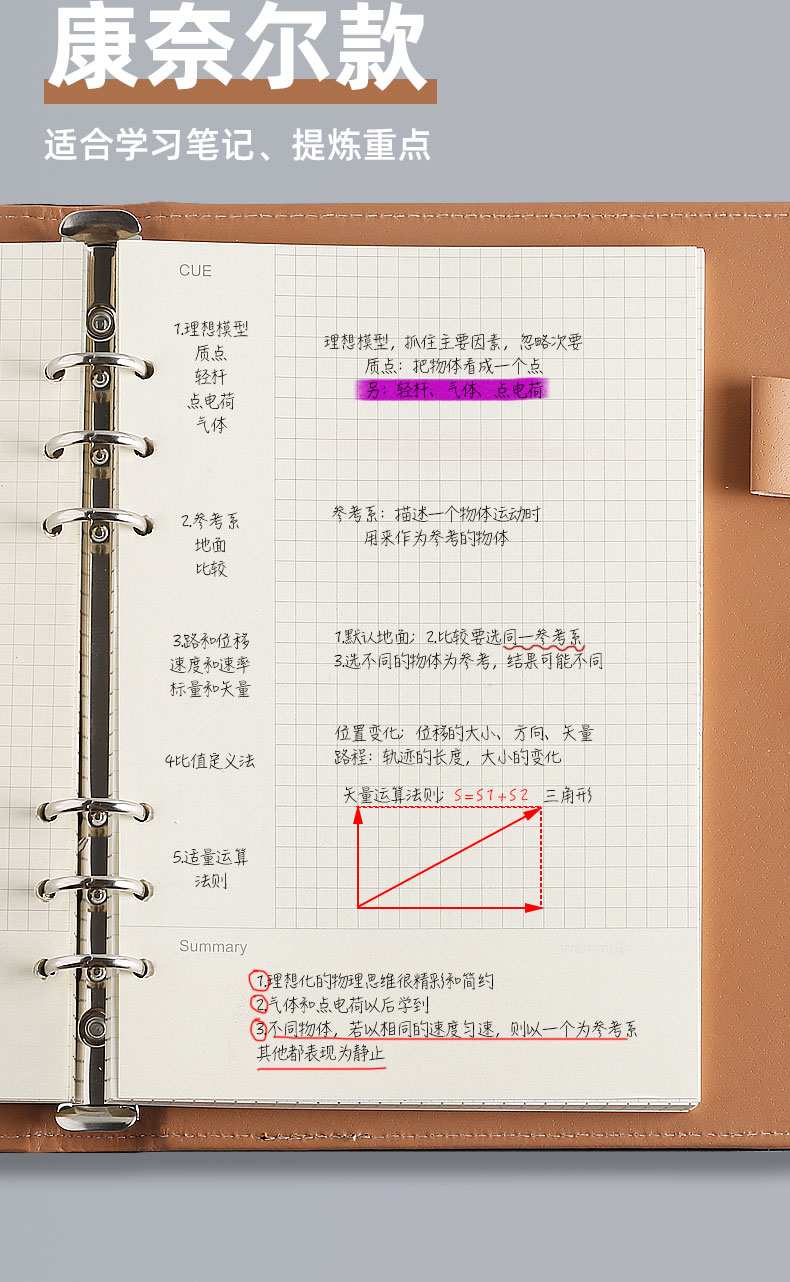 康奈尔款
适合学习笔记、提炼重点
CUE
1.理想模型
质点
轻杆
点电荷
气体
理想模型，抓住主要因素，忽略次要
质点：把物体看成一个点
另：轻杆、气体、点电荷
2.参考系
地面
比较
参考系：描述一个物体运动时
用来作为参考的物体
3.路和位移
速度和速率
标量和矢量
1.默认地面；2.比较要选同一参考系
3.选不同的物体为参考，结果可能不同
4比值定义法
位置变化；位移的大小、方向、矢量
路程：轨迹的长度，大小的变化
矢量运算法则；S=S1+S2 三角形
5.适量运算
法则
Summary
1.理想化的物理思维很精彩和简约
2.气体和点电荷以后学到
3.不同物体，若以相同的速度匀速，则以一个为参考系
其他都表现为静止